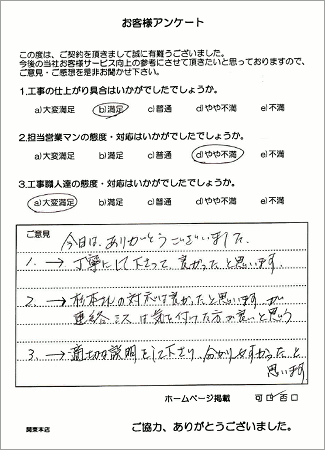 お客様アンケート
この度は、ご契約を頂きまして誠に有難うございました。
今後の当社お客様サービス向上の参考にさせて頂きたいと思っておりますので、
ご意見・ご感想を是非お聞かせ下さい。
1.工事の仕上がり具合はいかがでしたでしょうか。
a)大変満足 b)満足 c)普通 d)やや不満 e)不満
2.担当営業マンの態度・対応はいかがでしたでしょうか。
a)大変満足 b)満足 c)普通 d)やや不満 e)不満
3.工事職人達の態度・対応はいかがでしたでしょうか。
a)大変満足 b)満足 c)普通 d)やや不満 e)不満
ご意見
今日は、ありがとうございました。
1. → 丁寧にして下さって良かったと思います。
2. → の対応は良かったと思いますが
連絡ミスは気を付けた方が良いと思う
3. → 適切な説明をして下さり、分かりやすかったと
思います
ホームページ掲載 可□ 否□
関東本店
ご協力、ありがとうございました。